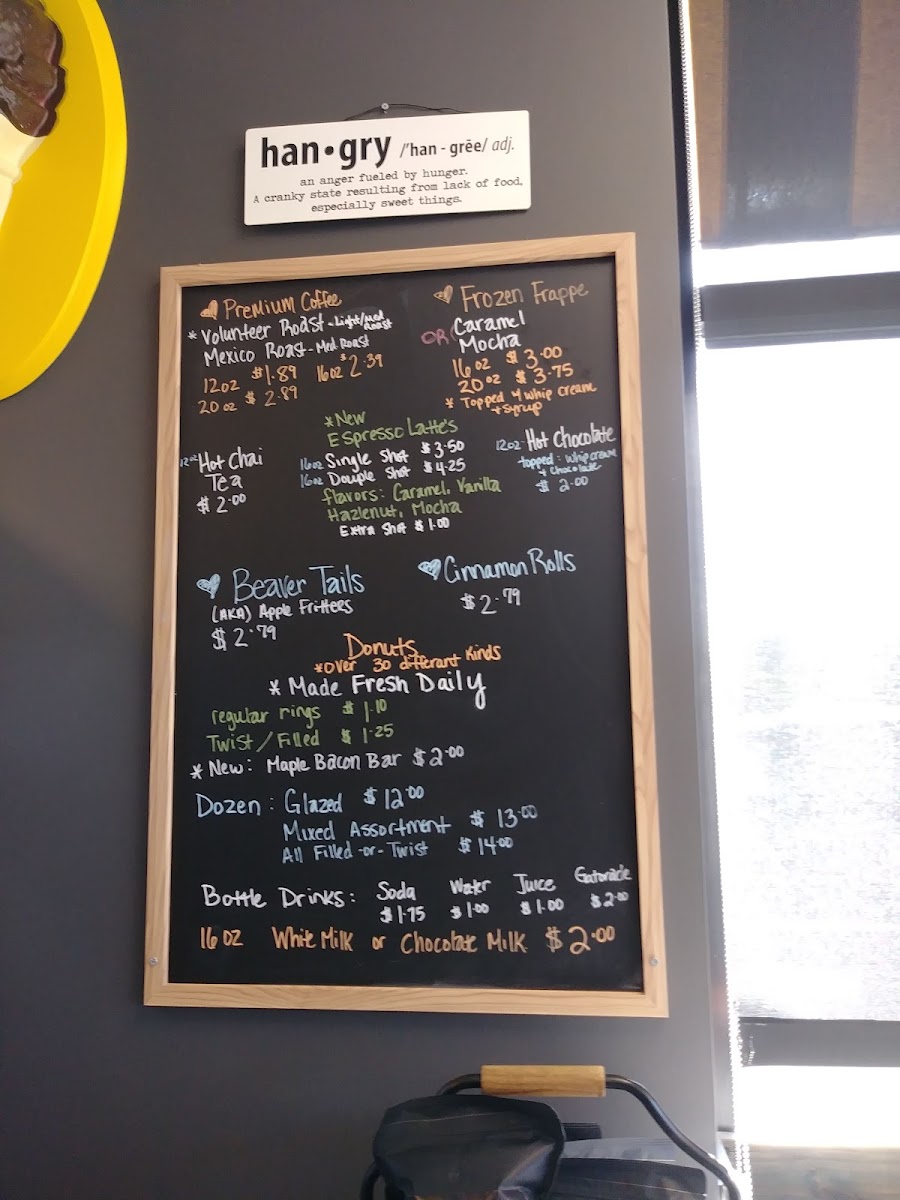 han•gry /'han - grēe/ adj.
an anger fueled by hunger.
A cranky state resulting from lack of food,
especially sweet things.
Premium Coffee
* Volunteer Roast - Light/med Roast
Mexico Roast - Med Roast
12oz $1.89 16oz $2.39
20oz $2.89
Frozen Frappe
Caramel
OR Mocha
16oz $3.00
20oz $3.75
* Topped w/ whip cream
+ syrup
12oz Hot Chai
Tea
$2.00
*New
Espresso Latte's
16oz Single Shot $3.50
16oz Douple Shot $4.25
flavors: Caramel, Vanilla
Hazlenut, Mocha
Extra Shot $1.00
12oz Hot Chocolate
topped: whip cream
+ chocolate
$2.00
Beaver Tails
(AKA) Apple Fritters
$2.79
Cinnamon Rolls
$2.79
Donuts
*over 30 differant kinds
* Made Fresh Daily
regular rings $1.10
Twist/Filled $1.25
* New: Maple Bacon Bar $2.00
Dozen: Glazed $12.00
Mixed Assortment $13.00
All Filled -or- Twist $14.00
Bottle Drinks: Soda Water Juice Gatorade
$1.75 $1.00 $1.00 $2.00
16oz White Milk or Chocolate Milk $2.00